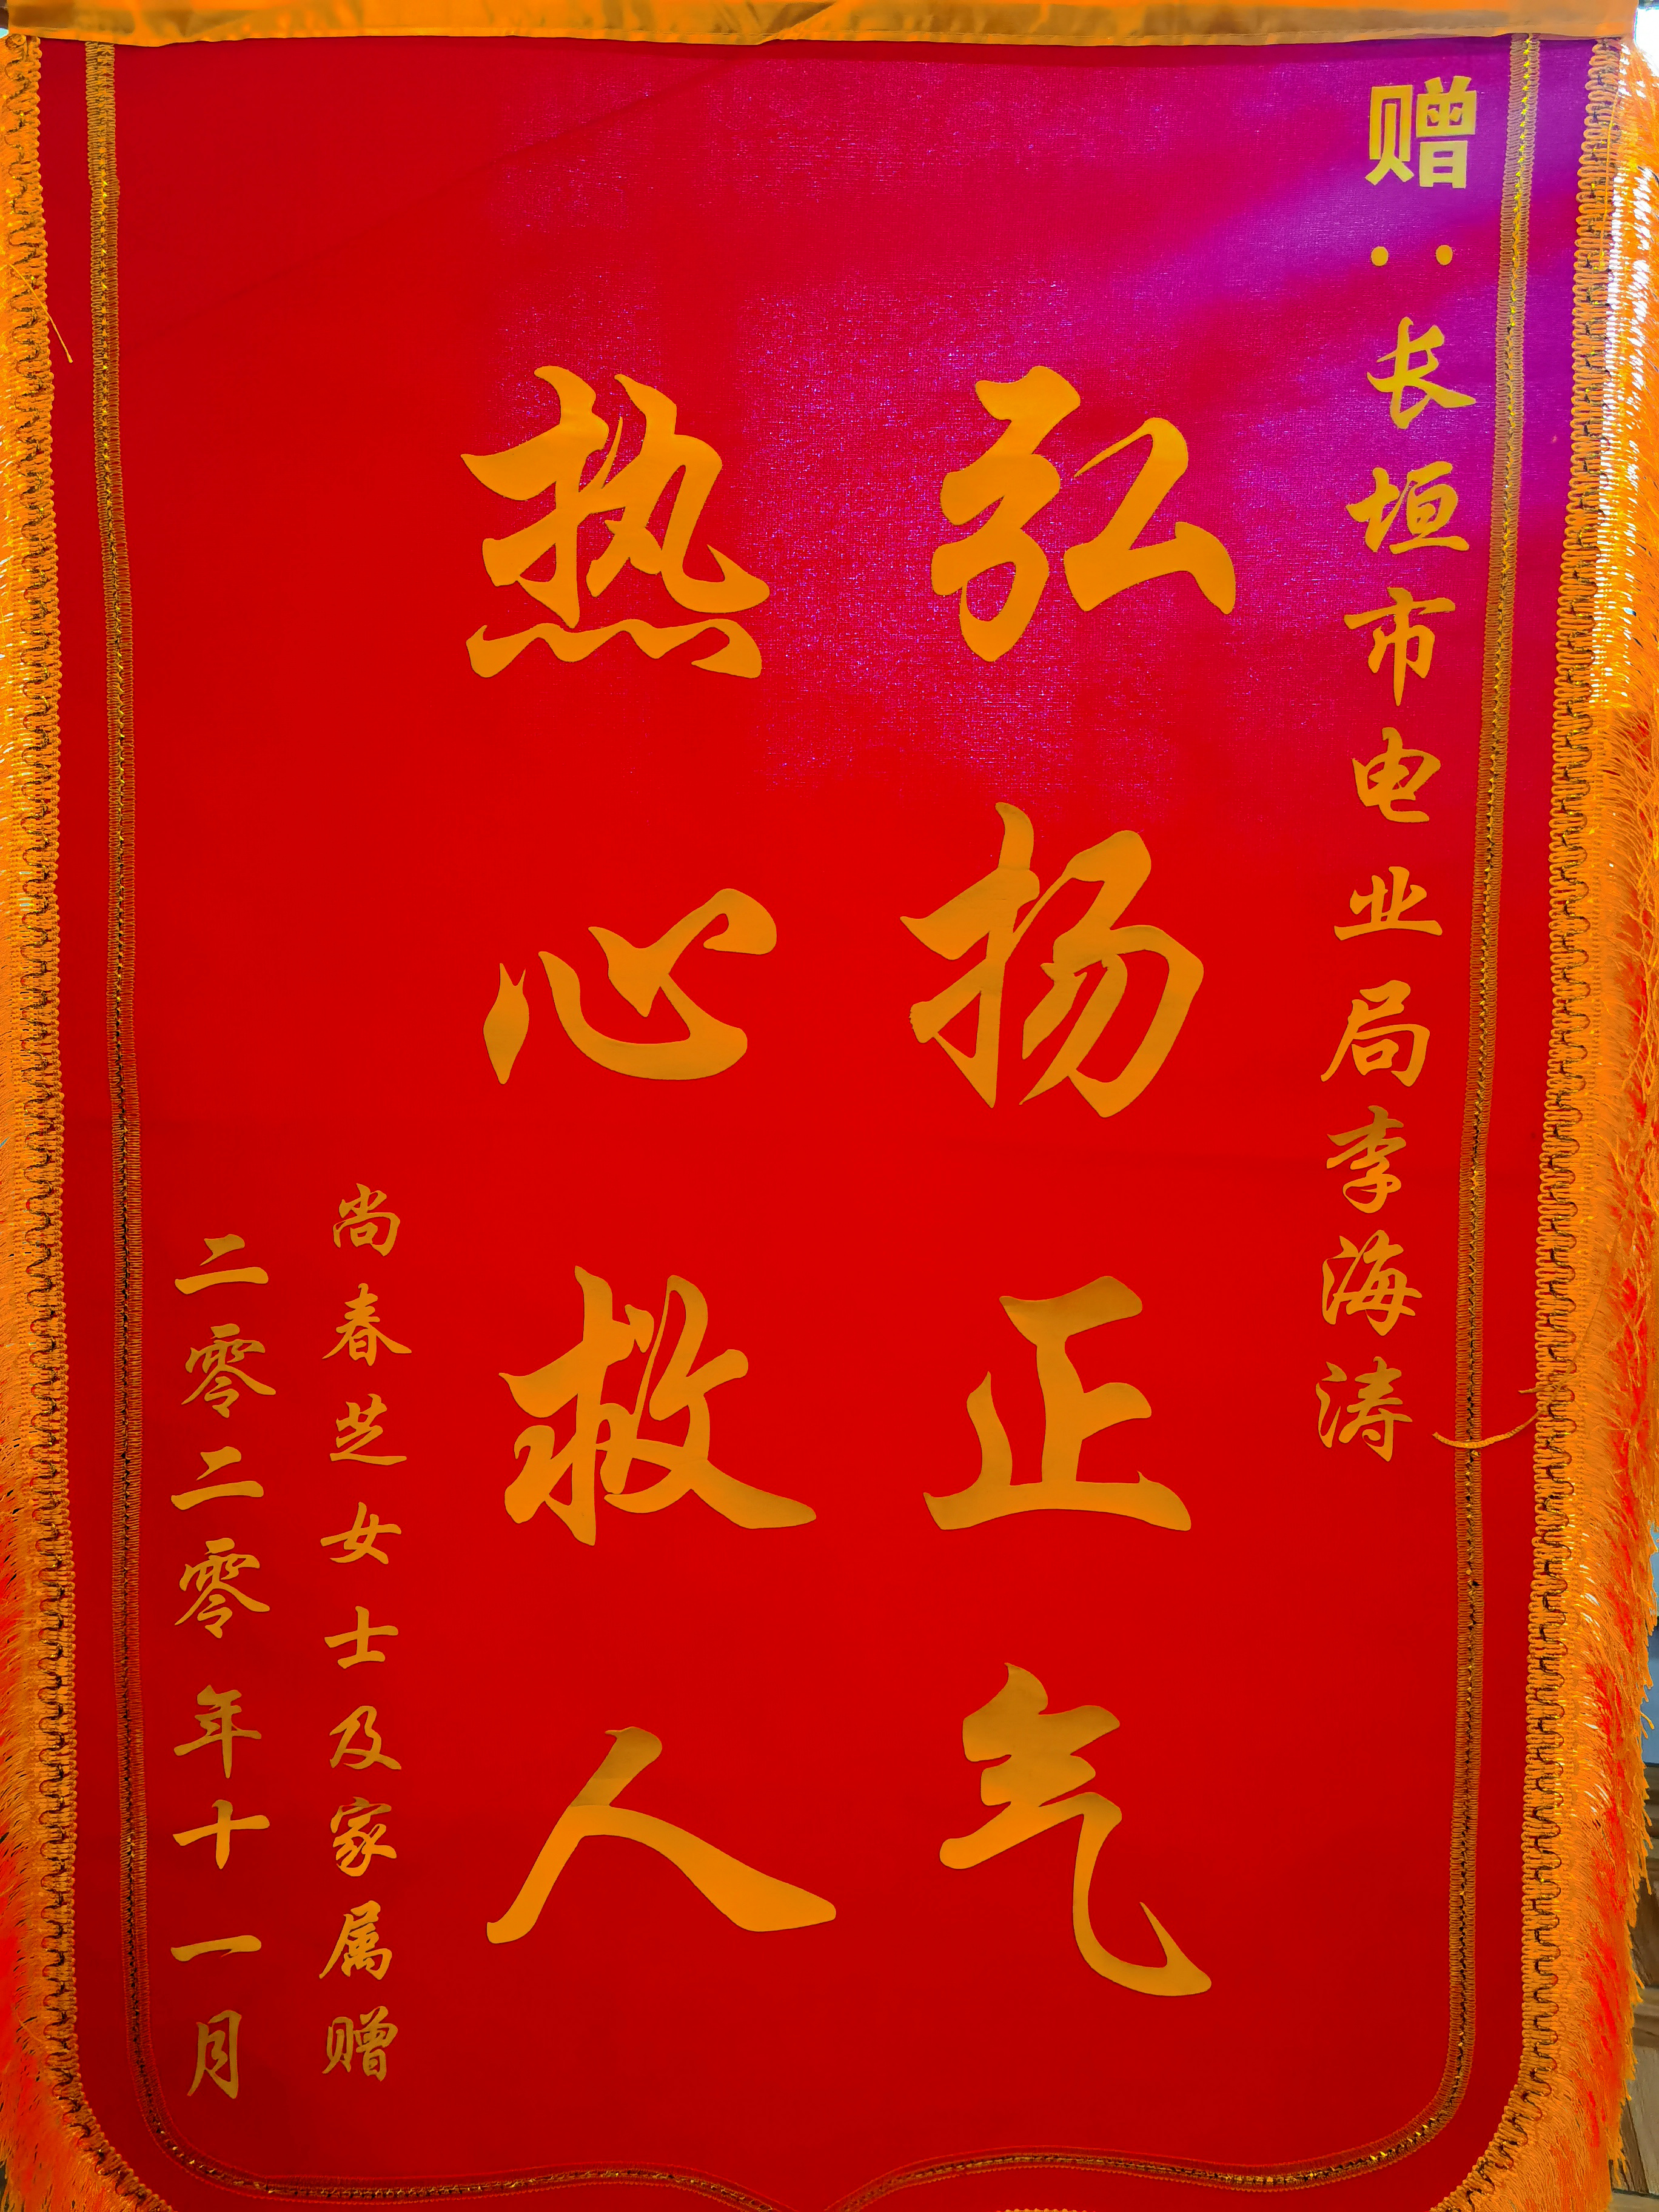 赠：长垣市电业局李海涛
弘扬正气
热心救人
尚春芝女士及家属赠
二零二零年十一月